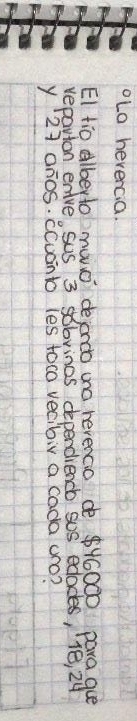 °La herencia.
El tío Alberto murió dejando una herencia de $46000 para que
repartan entre sus 3 sobrinas dependiendo sus edades, 18, 24
y 27 años. ¿Cuánto les toca recibir a cada uno?